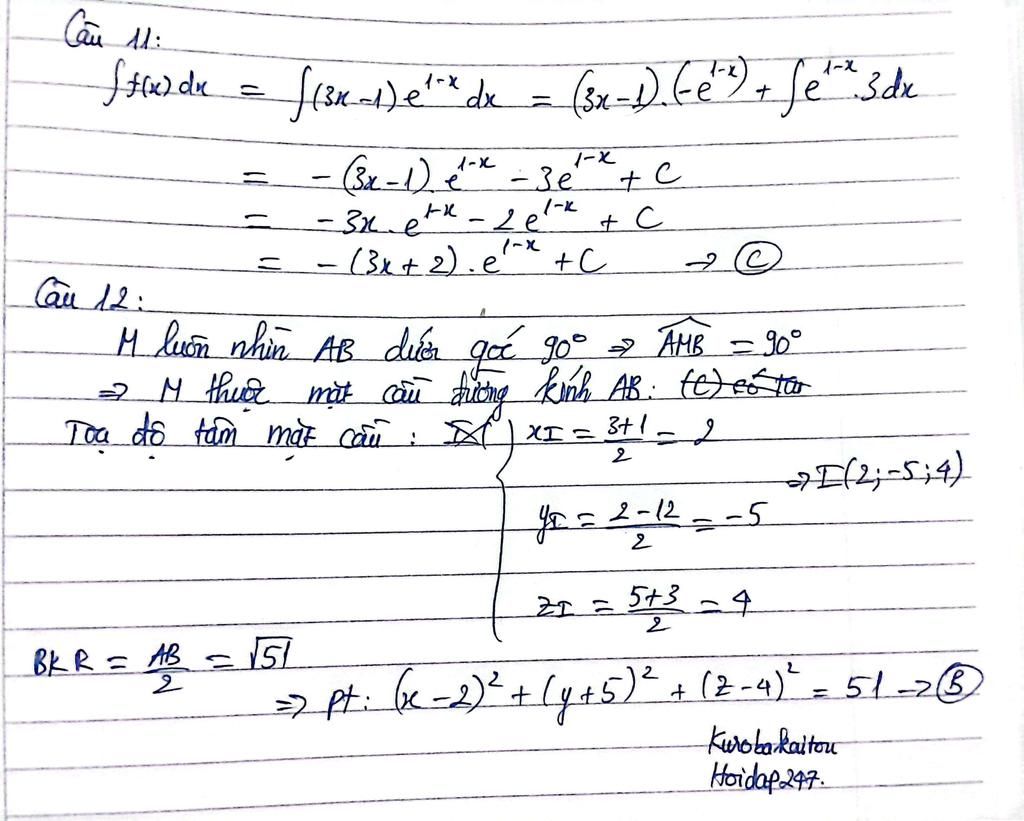 Câu 11:
∫f(x)dx = ∫(3x-1)e^{1-x}dx = (3x-1).(-e^{1-x}) + ∫e^{1-x}.3dx
= -(3x-1).e^{1-x} - 3e^{1-x} + C
= -3x.e^{1-x} - 2e^{1-x} + C
= -(3x+2).e^{1-x} + C → Ⓒ
Câu 12:
M luôn nhìn AB dưới góc 90° ⇒ \widehat{AMB} = 90°
⇒ M thuộc mặt cầu đường kính AB:
Toạ độ tâm mặt cầu: { x_I = \frac{3+1}{2} = 2
⇒ I(2;-5;4)
y_I = \frac{2-12}{2} = -5
z_I = \frac{5+3}{2} = 4
BK R = \frac{AB}{2} = √51
⇒ pt: (x-2)² + (y+5)² + (z-4)² = 51 → Ⓑ
Kurobakaitou
Hoidap247.